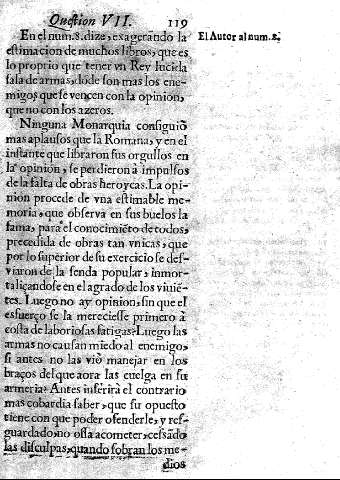 Question VII. 119
En el num.8. dize, exagerando la
estimacion de muchos libros, que es
lo proprio que tener vn Rey lucida
sala de armas, dõde son mas los ene-
migos que se vencen con la opinion,
que no con los azeros.
El Autor al num. 8.
Ninguna Monarquia consiguiò
mas aplausos que la Romana, y en el
instante que libraron sus orgullos en
la opinion, se perdieron à impulsos
de la falta de obras heroycas. La opi-
nion procede de vna estimable me-
moria, que observa en sus buelos la
fama, para el conocimiẽto de todos,
precedida de obras tan vnicas, que
por lo superior de su exercicio se des-
viaron de la senda popular, inmor-
talizandose en el agrado de los viviẽ-
tes. Luego no ay opinion, sin que el
esfuerço se la mereciesse primero à
costa de laboriosas fatigas? Luego las
armas no causan miedo al enemigo,
si antes no las viò manejar en los
braços del que aora las cuelga en su
armeria? Antes inferirà el contrario
mas cobardia saber, que su opuesto
tiene con que poder ofenderle, y res-
guardado no ossa acometer, cessãdo
las disculpas, quando sobran los me-
dios